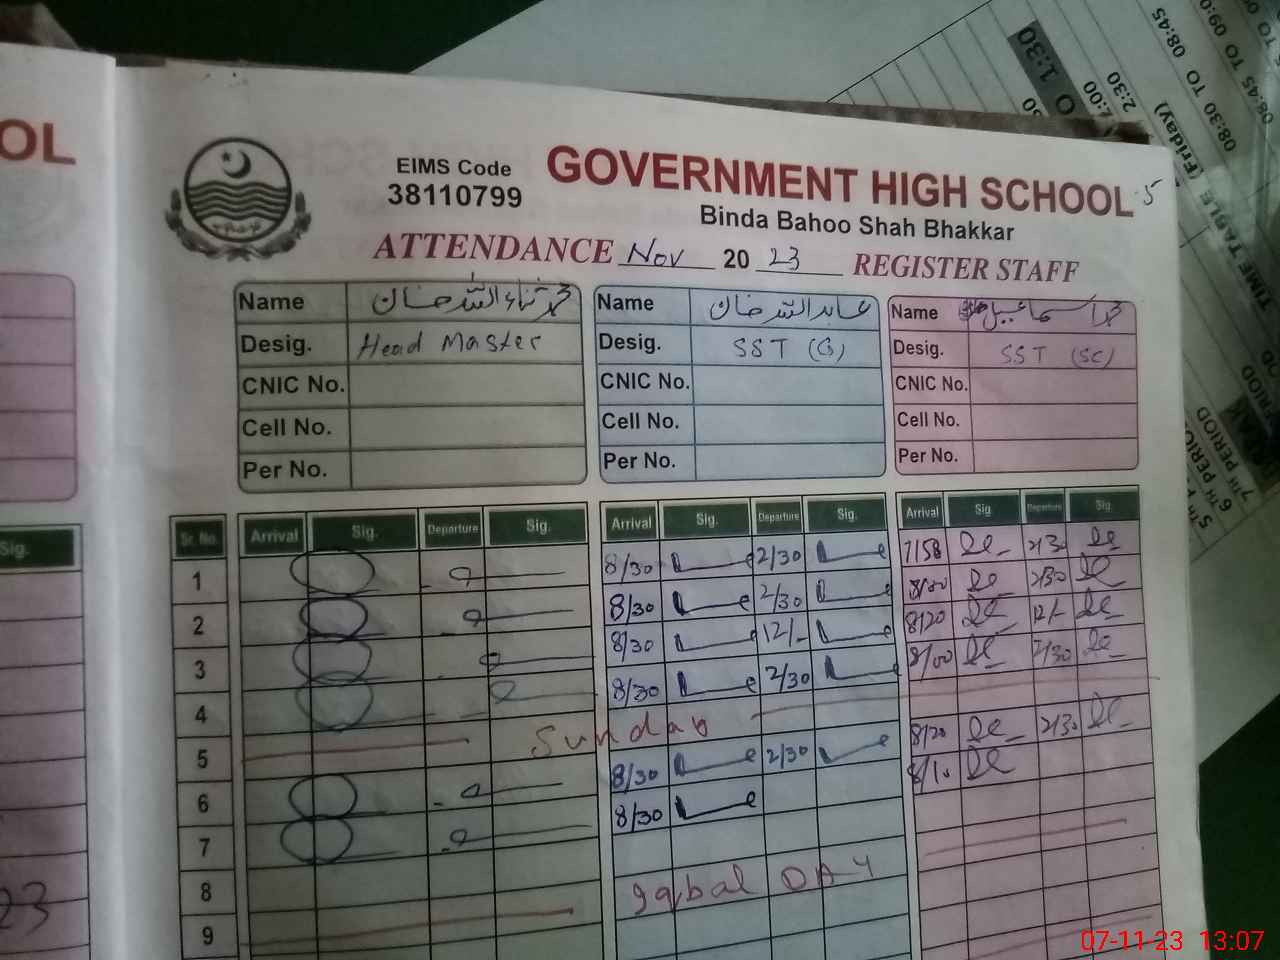 OL
EIMS Code
38110799
GOVERNMENT HIGH SCHOOL
5
Binda Bahoo Shah Bhakkar
ATTENDANCE Nov 20 23 REGISTER STAFF
Name محمد ثناء اللہ خان
Desig. Head Master
CNIC No.
Cell No.
Per No.
Name عابد اللہ خان
Desig. SST (G)
CNIC No.
Cell No.
Per No.
Name محمد اسماعیل
Desig. SST (SC)
CNIC No.
Cell No.
Per No.
Sig.
Sr. No. Arrival Sig. Departure Sig. Arrival Sig. Departure Sig. Arrival Sig. Departure Sig.
1 8/30 2/30 7/58 2/30
2 8/30 2/30 8/00 2/30
3 8/30 12/- 8/20 12/-
4 8/30 2/30 8/00 2/30
5 Sunday
6 8/30 2/30 8/20 2/30
7 8/30 8/10
8
9 Iqbal DAY
23
1:30
08:45
TO 09:0
08:30 TO 08:45
2:30
2:00
(Friday)
TIME TABLE
5TH
6TH PERIOD
7TH PERIOD
07-11-23 13:07